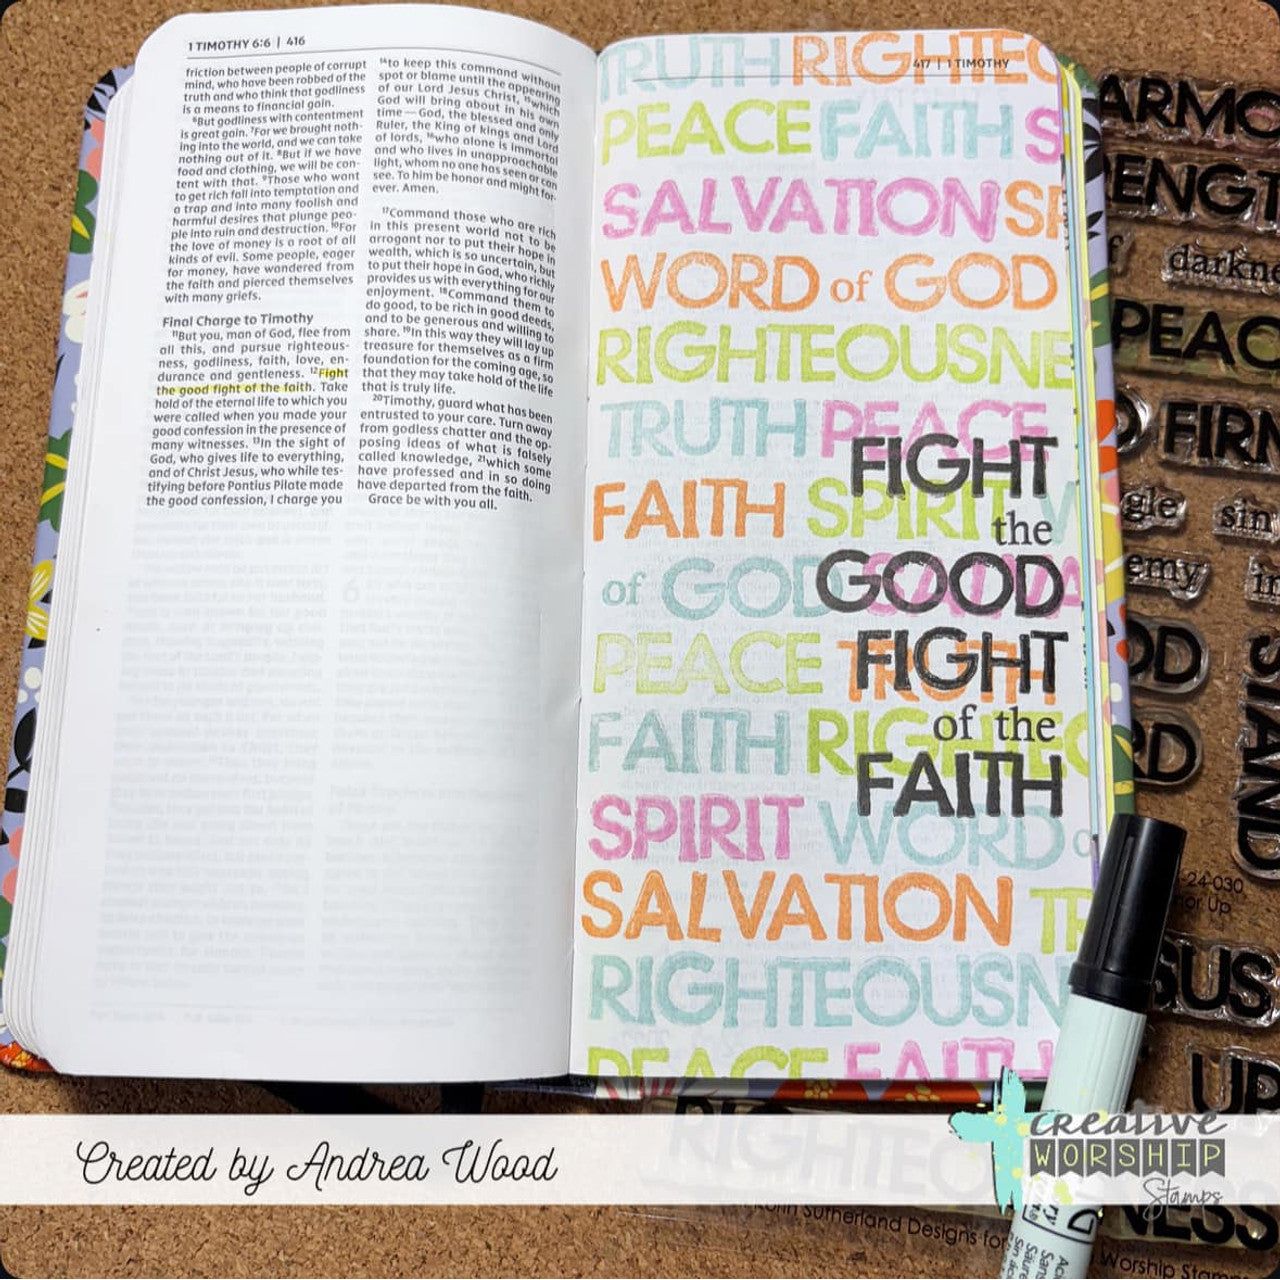 1 TIMOTHY 6:6 | 416
friction between people of corrupt
mind, who have been robbed of the
truth and who think that godliness
is a means to financial gain.
⁶But godliness with contentment
is great gain. ⁷For we brought noth-
ing into the world, and we can take
nothing out of it. ⁸But if we have
food and clothing, we will be con-
tent with that. ⁹Those who want
to get rich fall into temptation and
a trap and into many foolish and
harmful desires that plunge peo-
ple into ruin and destruction. ¹⁰For
the love of money is a root of all
kinds of evil. Some people, eager
for money, have wandered from
the faith and pierced themselves
with many griefs.
Final Charge to Timothy
¹¹But you, man of God, flee from
all this, and pursue righteous-
ness, godliness, faith, love, en-
durance and gentleness. ¹²Fight
the good fight of the faith. Take
hold of the eternal life to which you
were called when you made your
good confession in the presence of
many witnesses. ¹³In the sight of
God, who gives life to everything,
and of Christ Jesus, who while tes-
tifying before Pontius Pilate made
the good confession, I charge you
¹⁴to keep this command without
spot or blame until the appearing
of our Lord Jesus Christ, ¹⁵which
God will bring about in his own
time—God, the blessed and only
Ruler, the King of kings and Lord
of lords, ¹⁶who alone is immortal
and who lives in unapproachable
light, whom no one has seen or can
see. To him be honor and might for-
ever. Amen.
¹⁷Command those who are rich
in this present world not to be
arrogant nor to put their hope in
wealth, which is so uncertain, but
to put their hope in God, who richly
provides us with everything for our
enjoyment. ¹⁸Command them to
do good, to be rich in good deeds,
and to be generous and willing to
share. ¹⁹In this way they will lay up
treasure for themselves as a firm
foundation for the coming age, so
that they may take hold of the life
that is truly life.
²⁰Timothy, guard what has been
entrusted to your care. Turn away
from godless chatter and the op-
posing ideas of what is falsely
called knowledge, ²¹which some
have professed and in so doing
have departed from the faith.
Grace be with you all.
417 | 1 TIMOTHY
TRUTH RIGHTEO
PEACE FAITH S
SALVATION SP
WORD of GOD
RIGHTEOUSNE
TRUTH PEACE
FAITH SPIRIT W
of GOD SALVA
PEACE TRUTH
FAITH RIGHTEO
SPIRIT WORD o
SALVATION TR
RIGHTEOUSN
PEACE FAITH
FIGHT
the
GOOD
FIGHT
of the
FAITH
ARMO
RENGT
f darkne
PEAC
D FIRM
gle sin
emy in
OD
RD
STAND
-24-030
nor Up
SUS
UP
RIGHTEO
NESS
Sutherland Designs for
Worship Stam
Created by Andrea Wood
creative
WORSHIP
Stamps